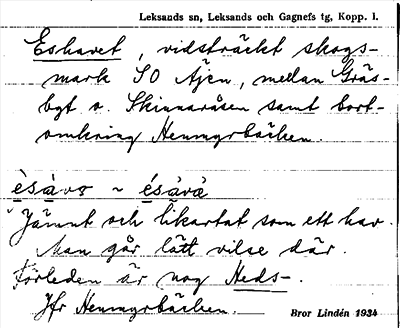 Leksands sn, Leksands och Gagnefs tg, Kopp. l.
Eshavet, vidsträckt skogs-
mark SO Äjen, mellan Gräs-
bgt o. Skinnaråsen samt bort-
omkring Henmyrbäcken.
èsàvo ~ ésàvà
Jämnt och likartat som ett hav.
Man går lätt vilse där.
Förleden är nog Heds-.
Jfr Henmyrbäcken.
Bror Lindén 1934